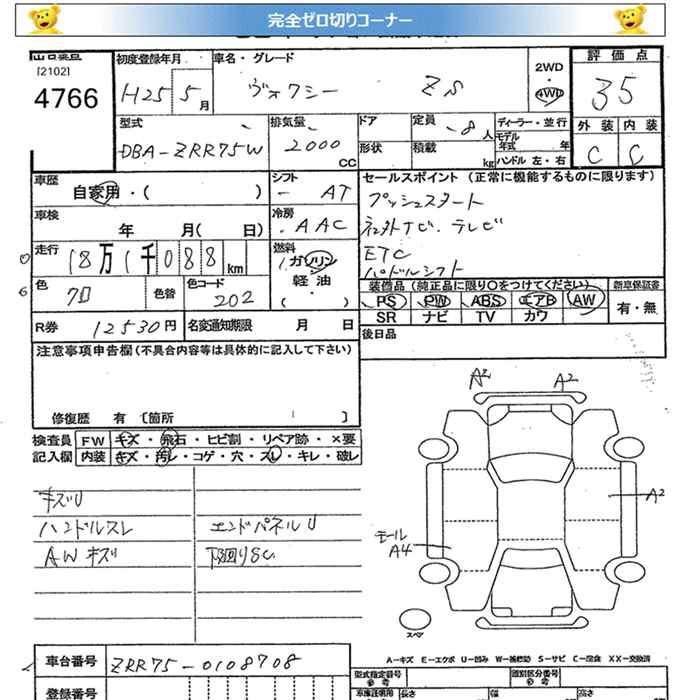 完全ゼロ切りコーナー
[2102]
4766
初度登録年月
H25 5月
車名・グレード
ヴォクシー ZS
2WD
・
4WD
評価点
35
型式
DBA-ZRR75W
排気量
2000 CC
ドア
形状
定員 8人
積載 kg
ディーラー・並行
モデル年式 年
ハンドル 左・右
外装 内装
C C
車歴
自家用・( )
シフト
AT
車検
年 月( 日)
冷房
AAC
走行
18万1千088km
燃料
ガソリン
軽油
( ・ )
セールスポイント (正常に機能するものに限ります)
プッシュスタート
社外ナビ.テレビ
ETC
パドルシフト
色
クロ
色替
色コード
202
装備品 (純正品に限り○をつけてください)
PS PW ABS エアB AW
SR ナビ TV カワ
新車保証書
有・無
R券 12530円
名変通知期限 月 日
後日品
注意事項申告欄(不具合内容等は具体的に記入して下さい)
修復歴 有 〔箇所 〕
検査員
記入欄
FW キズ・飛石・ヒビ割・リペア跡・×要
内装 キズ・汚レ・コゲ・穴・スレ・キレ・破レ
キズU
ハンドルスレ
エンドパネルU
AWキズ
下廻りSC
A2 A2
A2
モール
A4
スペア
A-キズ E-エクボ U-凹み W-補修跡 S-サビ C-腐食 XX-交換済
車台番号 ZRR75-0108708
登録番号
型式指定番号
参考
類別区分番号
参考
長さ 幅 高さ